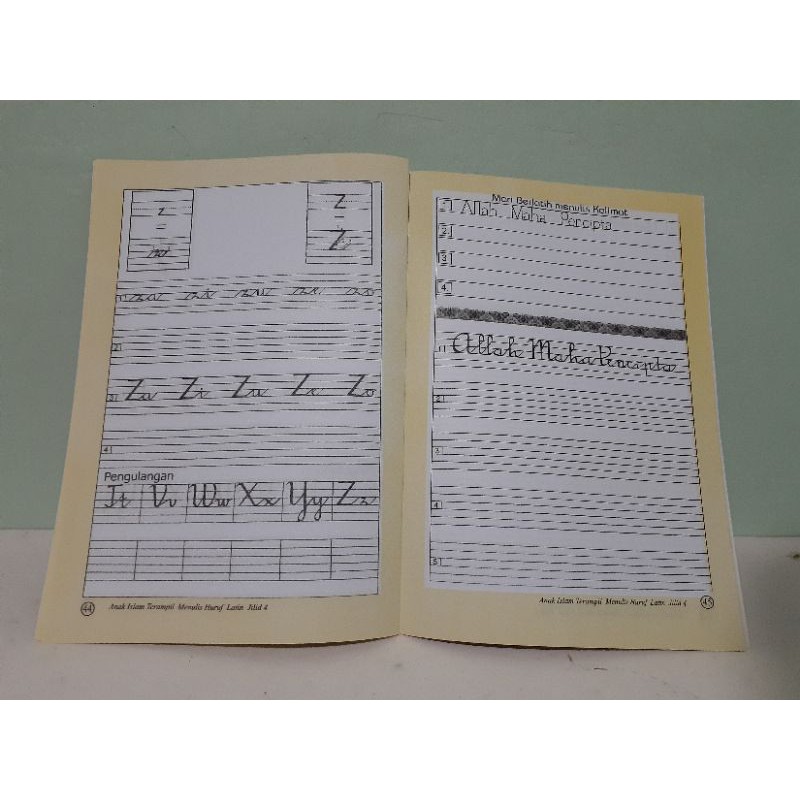 z
=
Z
=
Z
1. za zi zu ze zo
2.
3. Za Zi Zu Ze Zo
4.
Pengulangan
Tt Vv Ww Xx Yy Zz
44 Anak Islam Terampil Menulis Huruf Latin Jilid 4
Mari Berlatih menulis Kalimat
1. Allah Maha Pencipta
2.
3.
4.
1. Allah Maha Pencipta
2.
3.
4.
5.
Anak Islam Terampil Menulis Huruf Latin Jilid 4 45